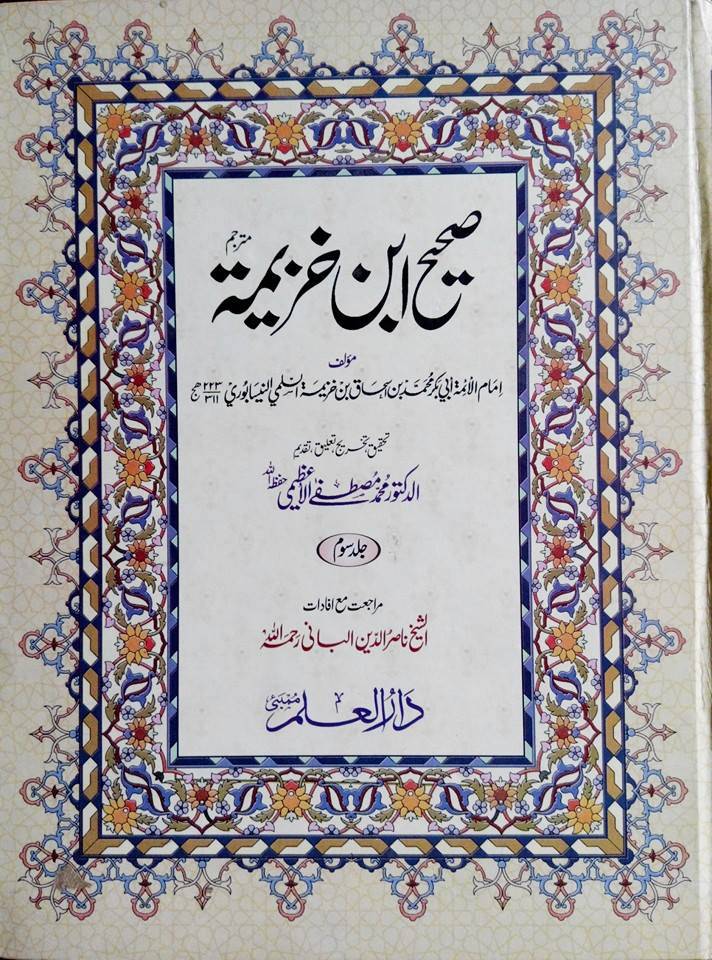 صحیح ابن خزیمة مترجم
مؤلف
امام الأئمة ابي بكر محمد بن اسحاق بن خزيمة السلمي النيسابوري ۲۲۳ ۳۱۱ هج
تحقیق، تخریج، تعلیق، تقدیم
الدكتور محمد مصطفی الاعظمی حفظه الله
جلد سوم
مراجعت مع افادات
الشیخ ناصر الدین البانی رحمه الله
دار العلم ممبئی